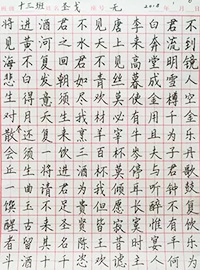 十三班 无 2018
将进酒 唐 李白 君不
见黄河之水天上来奔流到
海不复回君不见高堂明镜
悲白发朝如青丝暮成雪人
生得意须尽欢莫使金樽空
对月天生我材必有用千金
散尽还复来烹羊宰牛且为乐
会须一饮三百杯岑夫子丹
丘生将进酒杯莫停与君歌
一曲请君为我倾耳听钟鼓
馔玉不足贵但愿长醉不复
醒古来圣贤皆寂寞惟有饮
者留其名陈王昔时宴平乐
斗酒十千恣欢谑主人何为